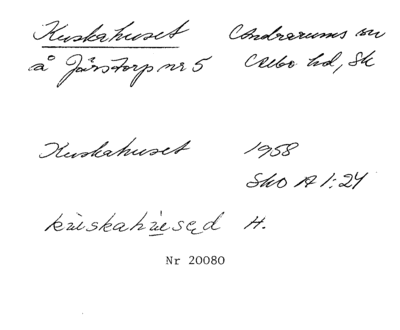 Kuskahuset Andrarums sn
å Järstorp nr 5 Albo hd, Sk
Kuskahuset 1958
SkO A 1:24
H.
Nr 20080